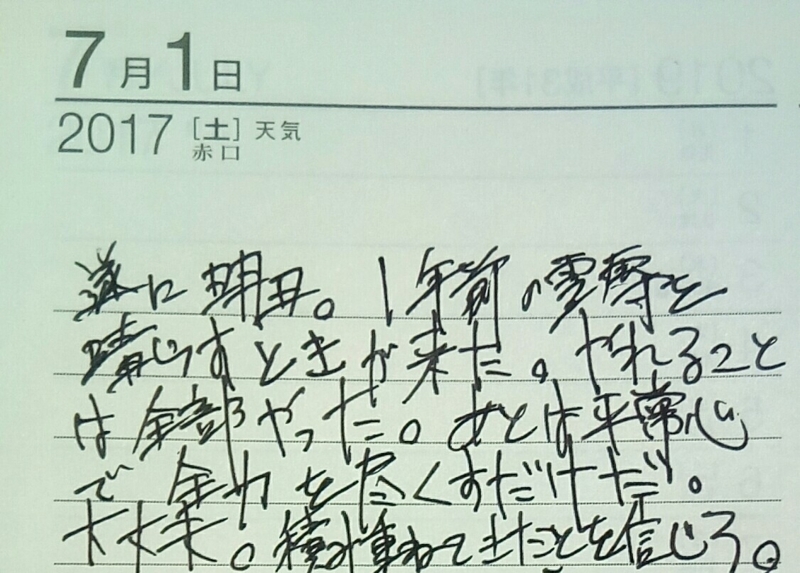 7月1日
2017 [土] 天気
赤口
遂に明日。1年前の雪辱を
晴らすときが来た。やれること
は全部やった。あとは平常心
で全力を尽くすだけだ。
大丈夫。積み重ねてきたことを信じろ。